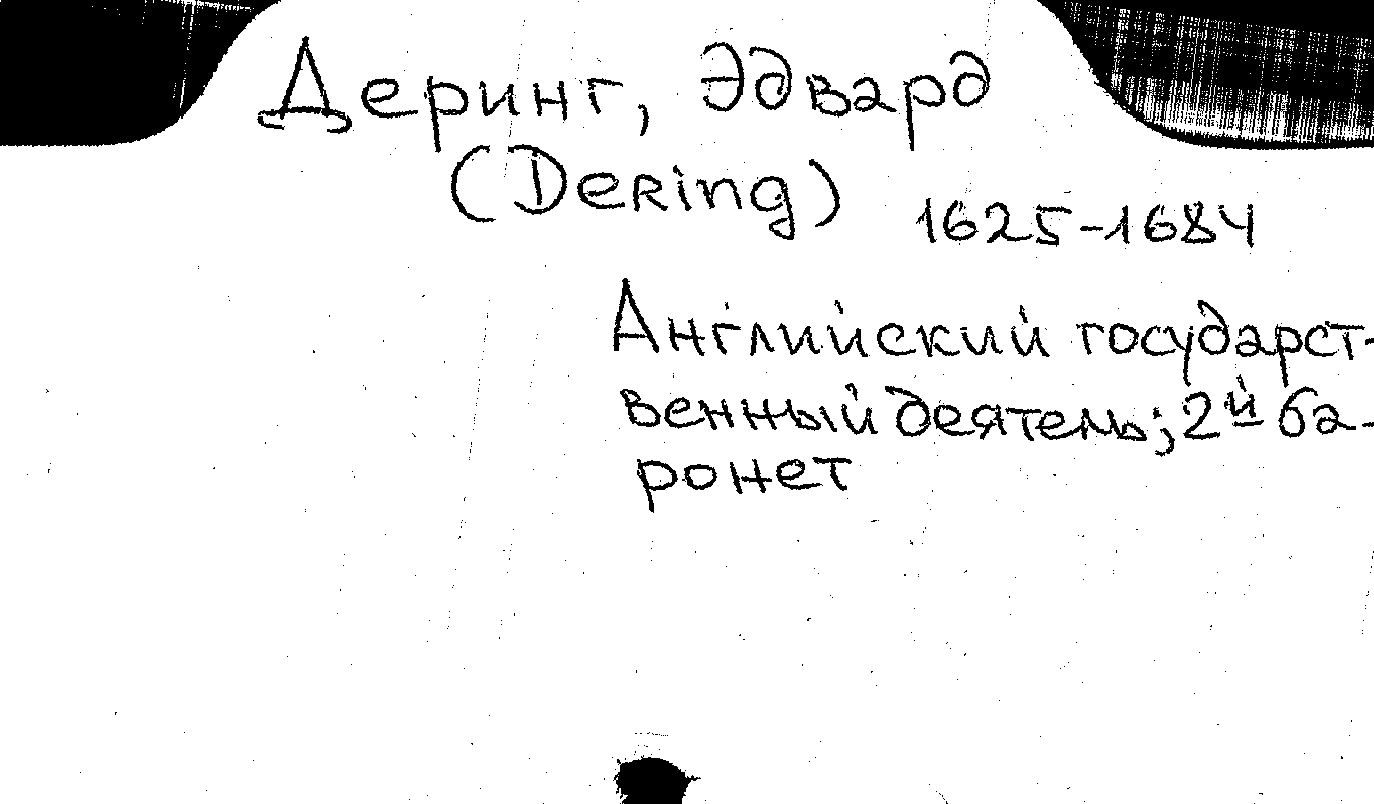 Деринг, Эдвард
(Dering) 1625-1684
Английский государст-
венный деятель; 2й ба-
ронет